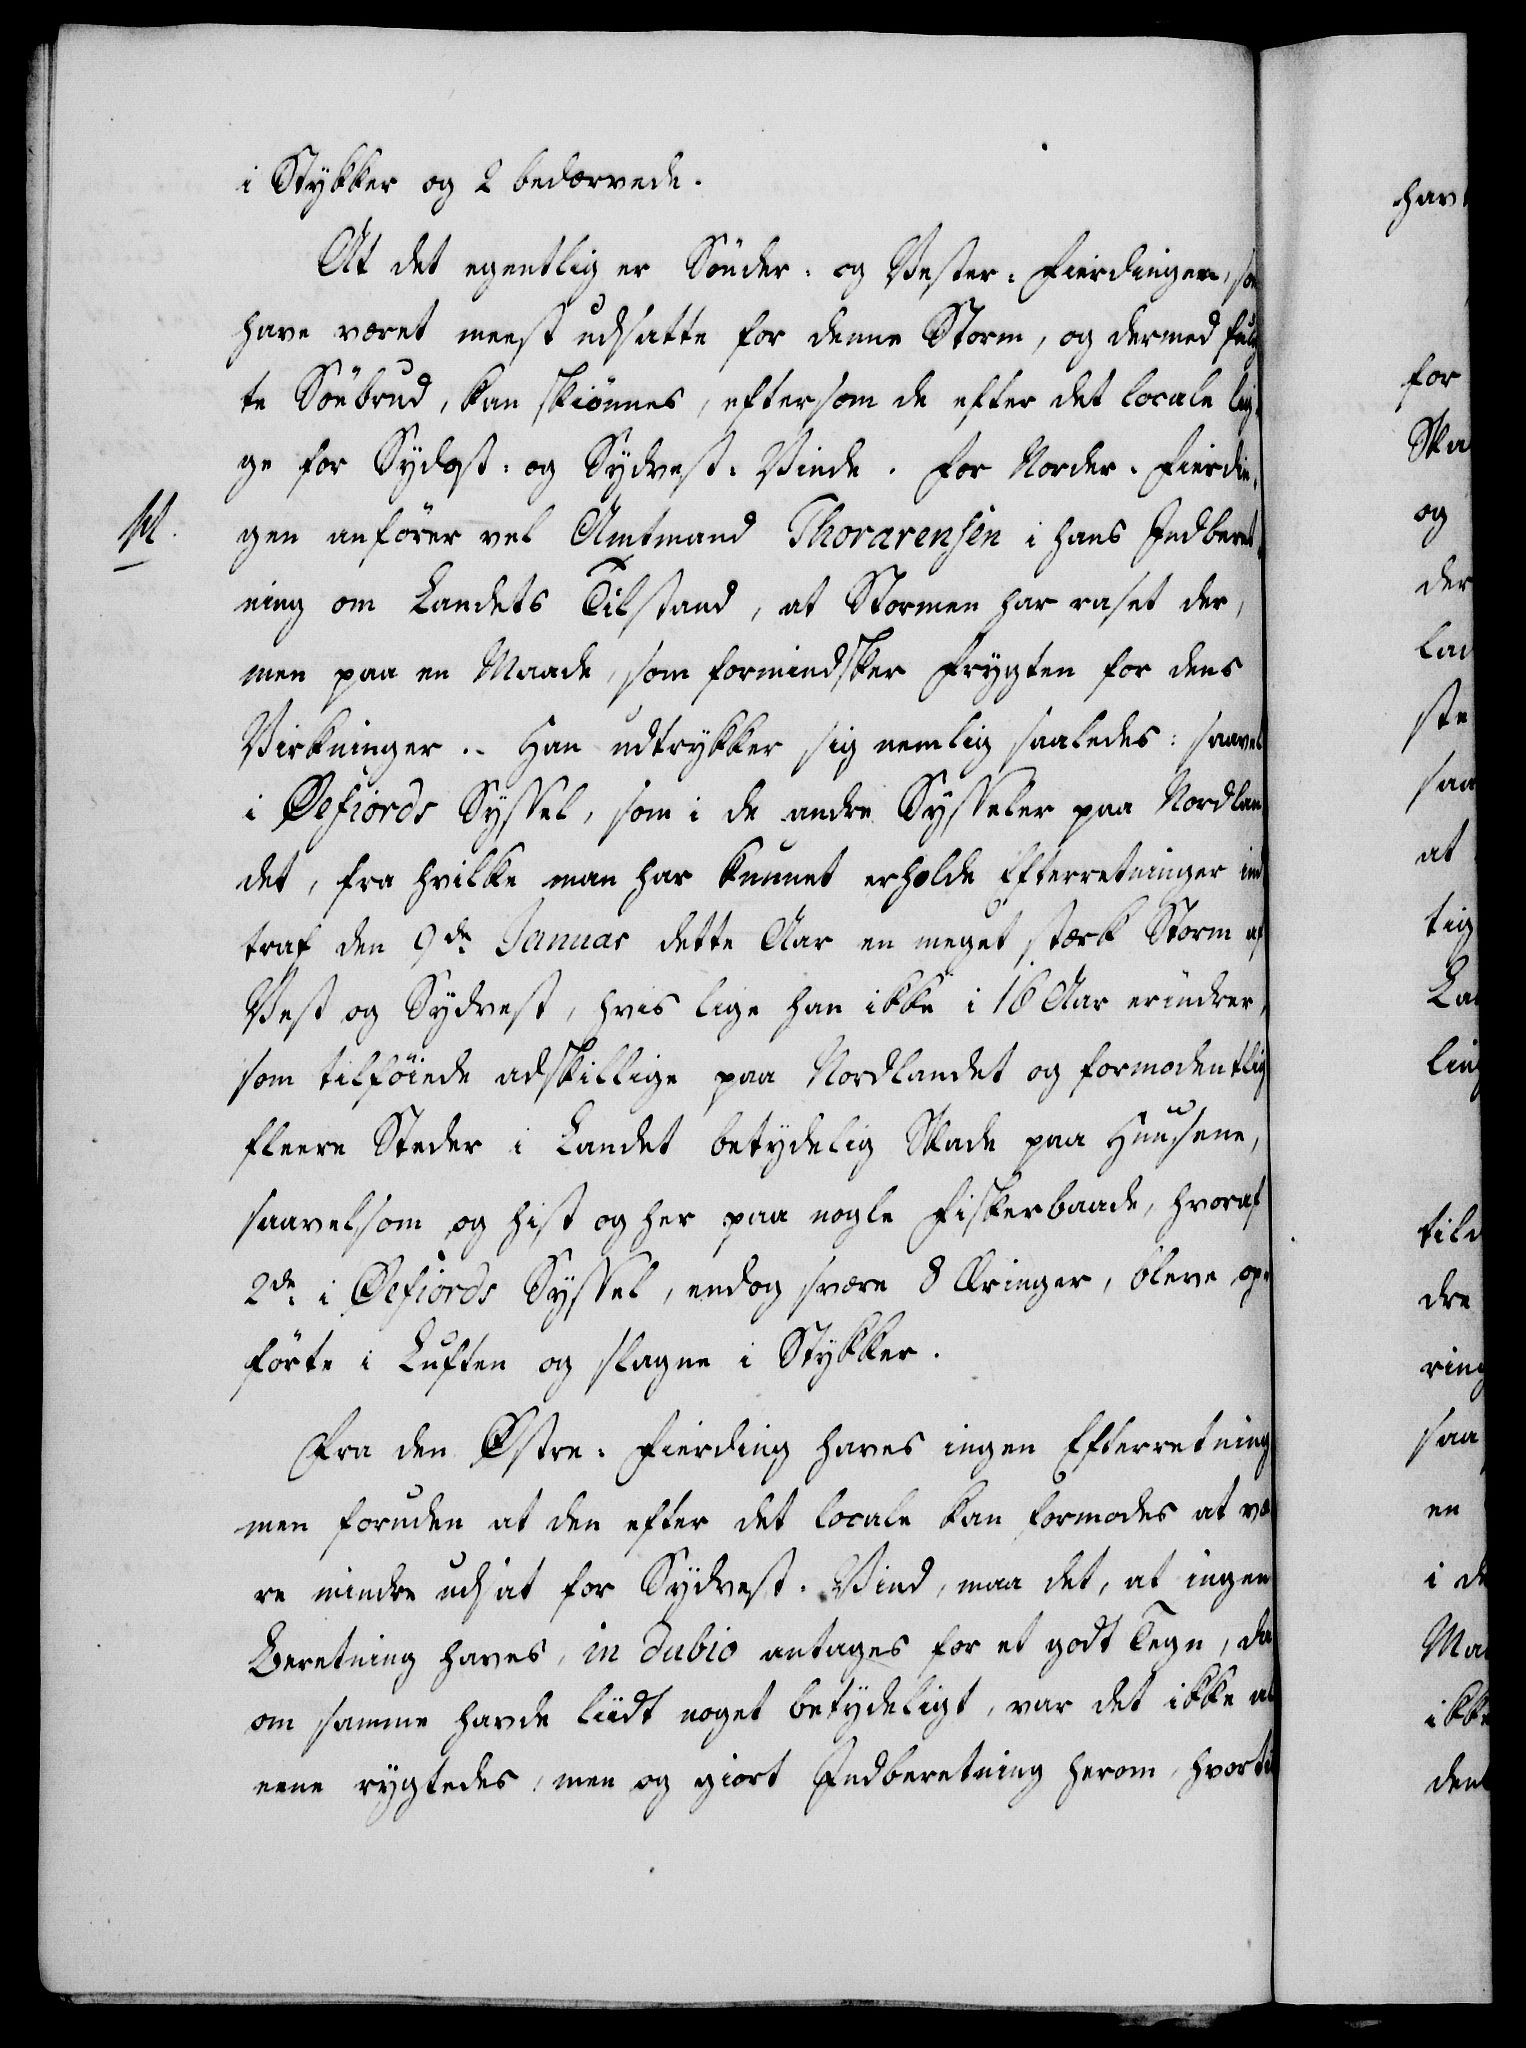 i Stykker og 2 bedærvede.
At det egentlig er Sönder- og Vester-Fierdingen, som
have været meest udsatte for denne Storm, og dermed fulg
te Söebrud, kan skiönnes, eftersom de efter det locale lig-
ge for Sydost- og Sydvest-Vinde. For Norder-Fierdin-
gen anförer vel Amtmand Thorarensen i hans Indberet-
ning om Landets Tilstand, at Stormen har raset der,
men paa en Maade, som formindsker Frygten for dens
Virkninger. - Han udtrykker sig nemlig saaledes: saavel
i Øefiords Syssel, som i de andre Sysseler paa Nordlan
det, fra hvilke man har kunnet erholde Efterretninger ind
traf den 9de Januar dette Aar en meget stærk Storm af
Vest og Sydvest, hvis lige han ikke i 16 Aar erindrer,
som tilföiede adskillige paa Nordlandet og formodentlig
fleere Steder i Landet betydelig Skade paa Huusene,
saavelsom og hist og her paa nogle Fiskerbaade, hvoraf
2de i Øefiords Syssel, endog svære 8 Æringer, bleve op-
förte i Luften og slagne i Stykker.
Fra den Østre-Fierding haves ingen Efterretning
men foruden at den efter det locale kan formodes at væ
re mindre udsat for Sydvest-Vind, maa det, at ingen
Beretning haves, in dubio antages for et godt Tegn, da
om samme havde liidt noget betydeligt, var det ikke al
eene rygtedes, men og giort Indberetning herom, hvortil
havt
for
Ska
og
der
lad
ste
saa
at
tig
La
ling
dre
ring
saa
en
i de
Ma
ikke
den